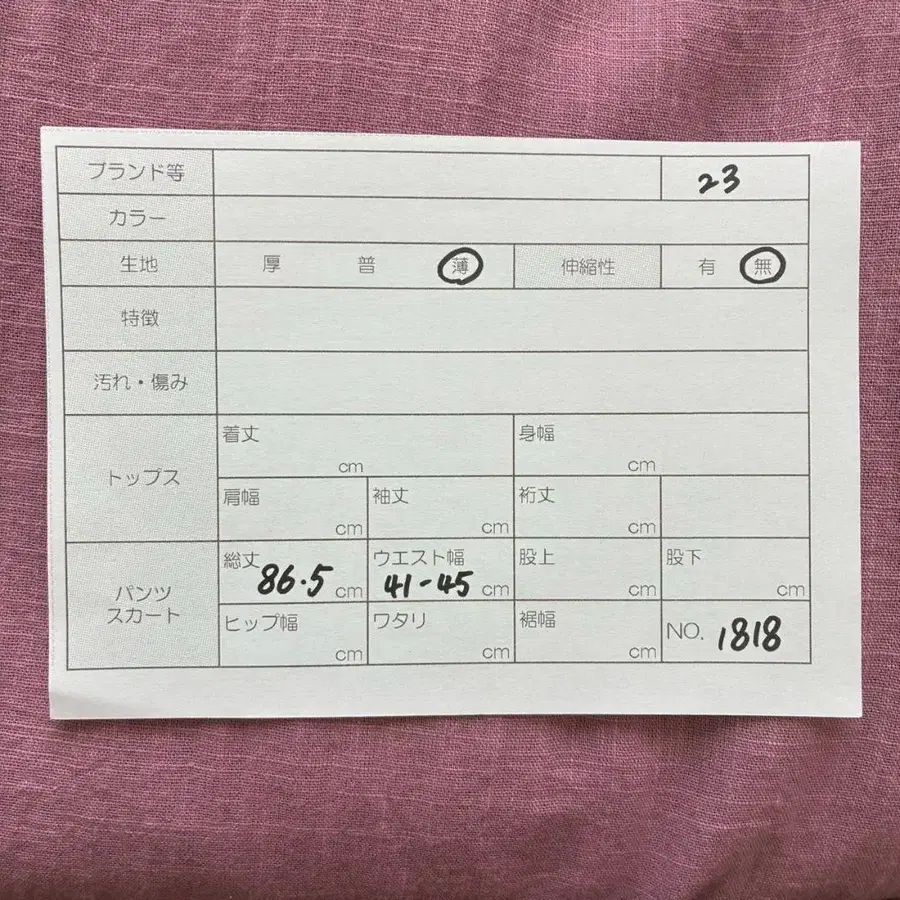 ブランド等 23
カラー
生地 厚 普 薄 伸縮性 有 無
特徴
汚れ・傷み
トップス
着丈 cm 身幅 cm
肩幅 cm 袖丈 cm 裄丈 cm
パンツ
スカート
総丈 86.5 cm ウエスト幅 41-45 cm 股上 cm 股下 cm
ヒップ幅 cm ワタリ cm 裾幅 cm NO. 1818